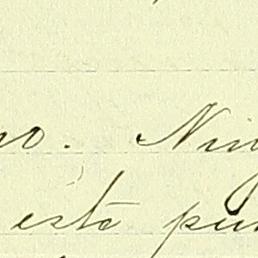 no. Nin
este pu